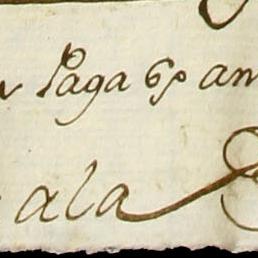 Paga 6p am
ala